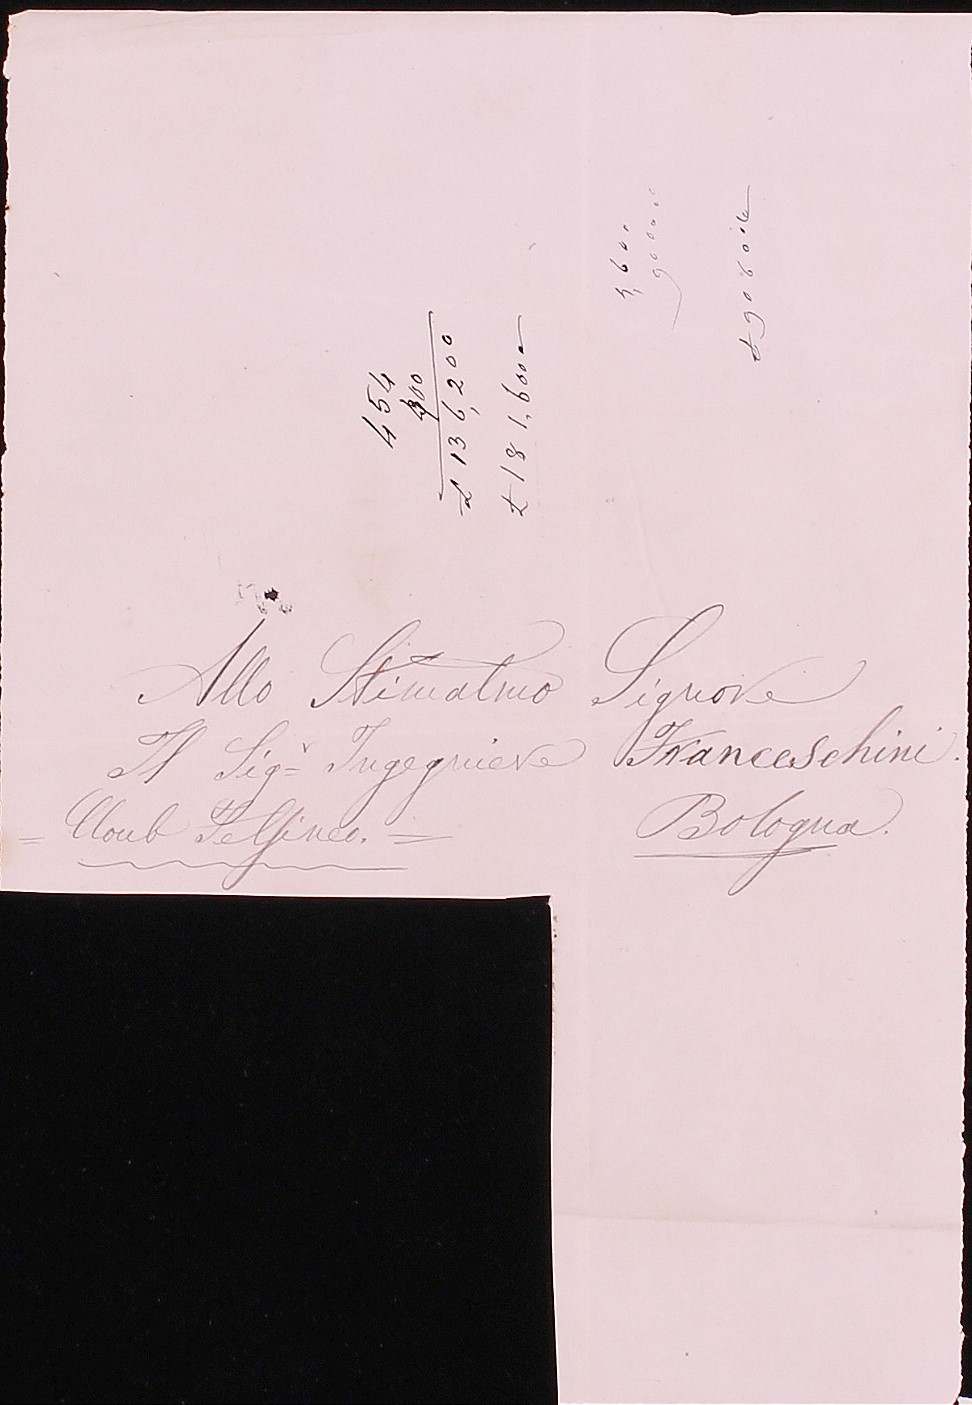 454
300
£ 136,200
£ 181,600
Allo Stimatmo Signore
Il Sigr Ingegniere Franceschini.
= Cloub Felsineo. = Bologna.